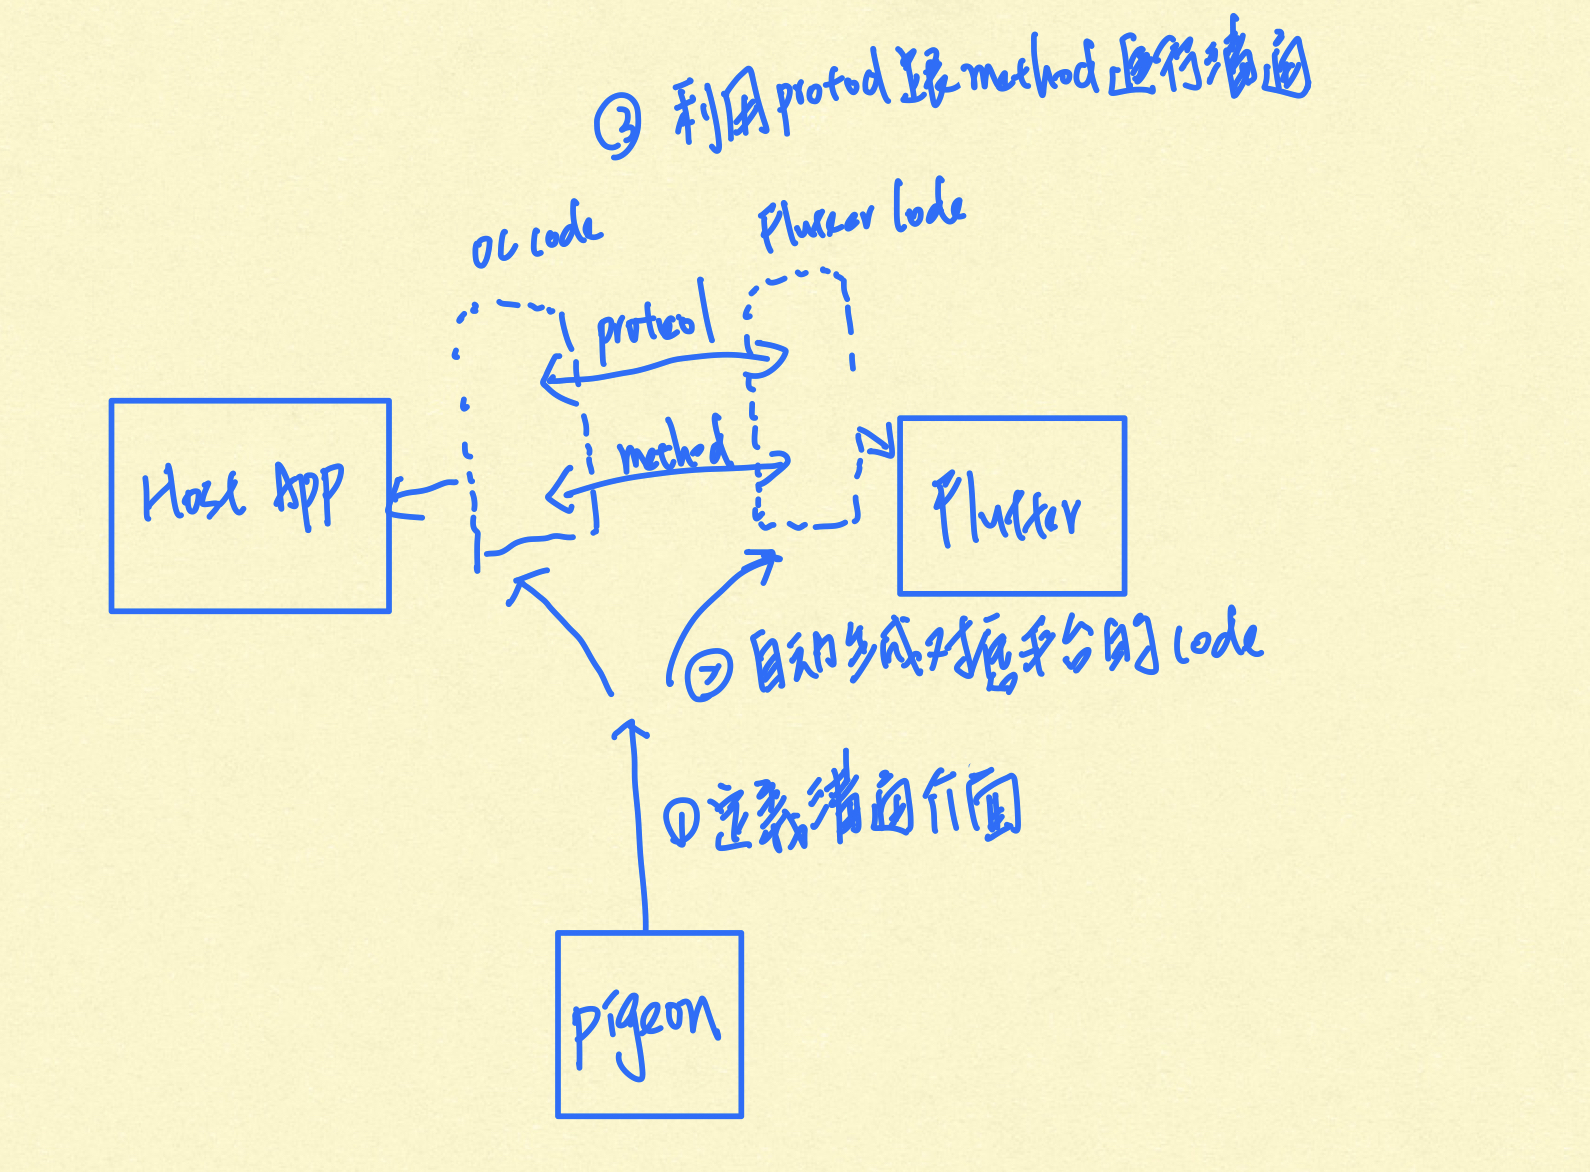 ③ 利用 protocol 跟 method 進行溝通
OC code
Flutter Code
protocol
method
Host App
Flutter
② 自動生成對應平台的 code
① 定義溝通介面
pigeon